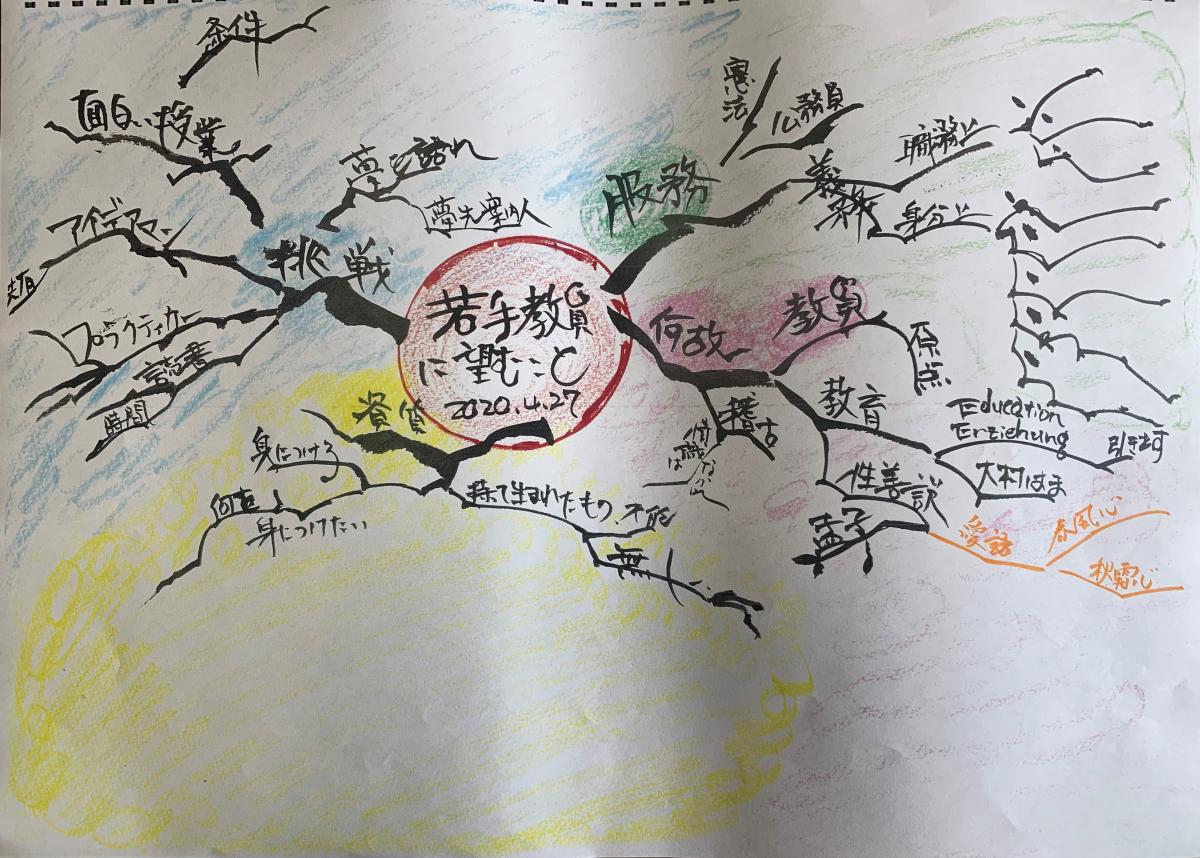 若手教員
に望むこと
2020.4.27
服務
憲法
公務員
義務
職務上
身分上
何故
教員
原点
稽古
教育
Education
Erziehung
引き出す
大村はま
性善説
孟子
愛語
春風心
秋霜心
資質
身につける
何度
身につけたい
持て生まれたもの
才能
無
挑戦
夢を語れ
夢先案内人
面白い授業
条件
アイデアマン
プラクティカー
読書
時間